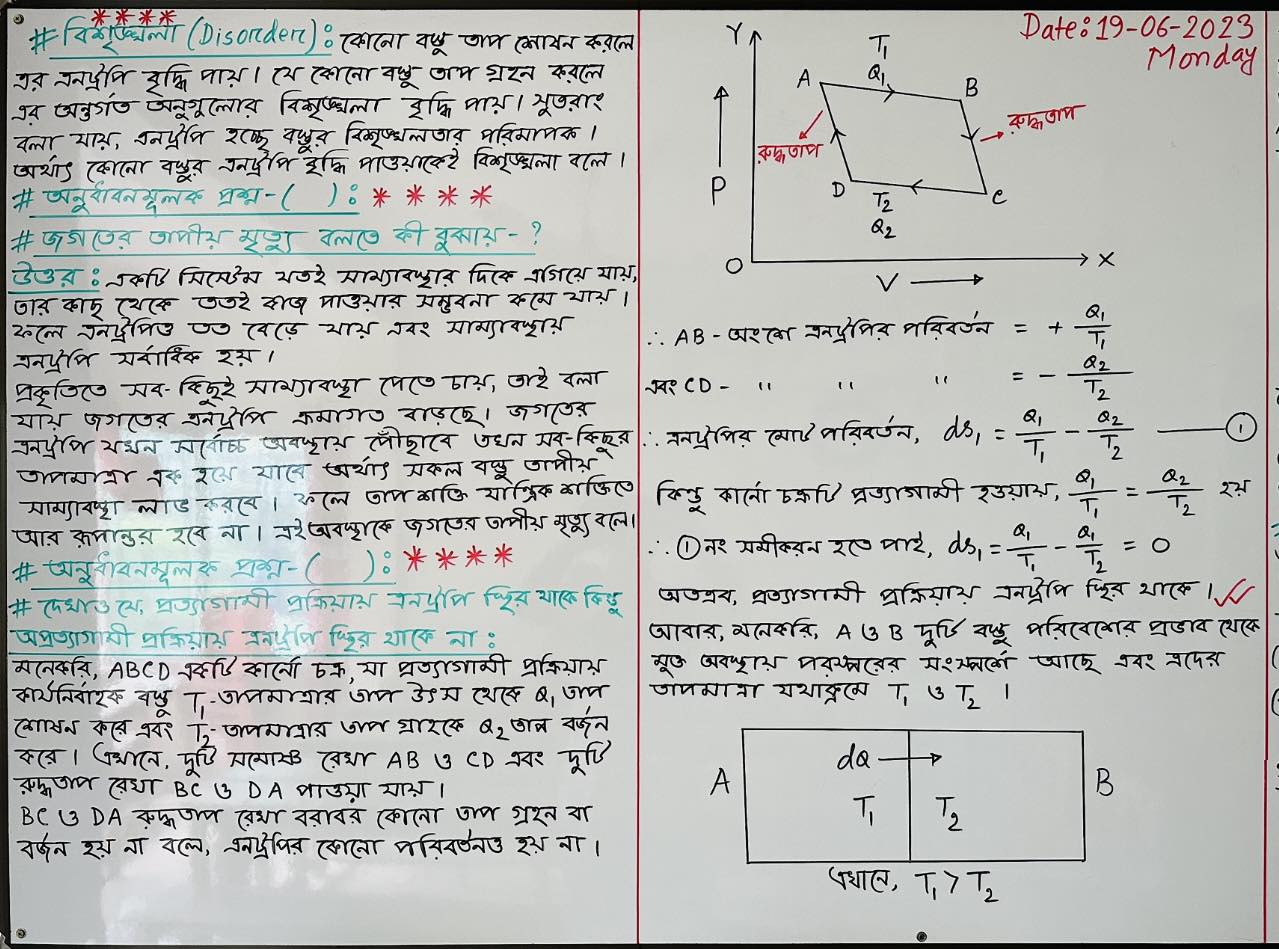 * * * *
# বিশৃঙ্খলা (Disorder): কোনো বস্তু তাপ শোষন করলে
এর এনট্রপি বৃদ্ধি পায়। যে কোনো বস্তু তাপ গ্রহন করলে
এর অন্তর্গত অনুগুলোর বিশৃঙ্খলা বৃদ্ধি পায়। সুতরাং
বলা যায়, এনট্রপি হচ্ছে বস্তুর বিশৃঙ্খলতার পরিমাপক।
অর্থাৎ কোনো বস্তুর এনট্রপি বৃদ্ধি পাওয়াকেই বিশৃঙ্খলা বলে।
# অনুধাবনমূলক প্রশ্ন-( ): * * * *
# জগতের তাপীয় মৃত্যু বলতে কী বুঝায়-?
উত্তর: একটি সিস্টেম যতই সাম্যাবস্থার দিকে এগিয়ে যায়,
তার কাছ থেকে ততই কাজ পাওয়ার সম্ভবনা কমে যায়।
ফলে এনট্রপিও তত বেড়ে যায় এবং সাম্যাবস্থায়
এনট্রপি সর্বাধিক হয়।
প্রকৃতিতে সব-কিছুই সাম্যাবস্থা পেতে চায়, তাই বলা
যায় জগতের এনট্রপি ক্রমাগত বাড়ছে। জগতের
এনট্রপি যখন সর্বোচ্চ অবস্থায় পৌঁছাবে তখন সব-কিছুর
তাপমাত্রা এক হয়ে যাবে অর্থাৎ সকল বস্তু তাপীয়
সাম্যাবস্থা লাভ করবে। ফলে তাপ শক্তি যান্ত্রিক শক্তিতে
আর রূপান্তর হবে না। এই অবস্থাকে জগতের তাপীয় মৃত্যু বলে।
# অনুধাবনমূলক প্রশ্ন-( ): * * * *
# দেখাও যে, প্রত্যাগামী প্রক্রিয়ায় এনট্রপি স্থির থাকে কিন্তু
অপ্রত্যাগামী প্রক্রিয়ায় এনট্রপি স্থির থাকে না:
মনেকরি, ABCD একটি কার্নো চক্র, যা প্রত্যাগামী প্রক্রিয়ায়
কার্যনির্বাহক বস্তু T₁-তাপমাত্রার তাপ উৎস থেকে Q₁ তাপ
শোষন করে এবং T₂-তাপমাত্রার তাপ গ্রাহকে Q₂ তাপ বর্জন
করে। এখানে, দুটি সমোষ্ণ রেখা AB ও CD এবং দুটি
রুদ্ধতাপ রেখা BC ও DA পাওয়া যায়।
BC ও DA রুদ্ধতাপ রেখা বরাবর কোনো তাপ গ্রহন বা
বর্জন হয় না বলে, এনট্রপির কোনো পরিবর্তনও হয় না।
Date: 19-06-2023
Monday
Y
T₁
A Q₁ B
রুদ্ধতাপ
রুদ্ধতাপ
P
D T₂ C
Q₂
O X
V
∴ AB-অংশে এনট্রপির পরিবর্তন = + Q₁/T₁
এবং CD- " " " = - Q₂/T₂
∴ এনট্রপির মোট পরিবর্তন, ds₁ = Q₁/T₁ - Q₂/T₂ —— ①
কিন্তু কার্নো চক্রটি প্রত্যাগামী হওয়ায়, Q₁/T₁ = Q₂/T₂ হয়
∴ ① নং সমীকরন হতে পাই, ds₁ = Q₁/T₁ - Q₁/T₂ = 0
অতএব, প্রত্যাগামী প্রক্রিয়ায় এনট্রপি স্থির থাকে।
আবার, মনেকরি, A ও B দুটি বস্তু পরিবেশের প্রভাব থেকে
মুক্ত অবস্থায় পরস্পরের সংস্পর্শে আছে এবং এদের
তাপমাত্রা যথাক্রমে T₁ ও T₂ ।
dQ
A B
T₁ T₂
এখানে, T₁ > T₂